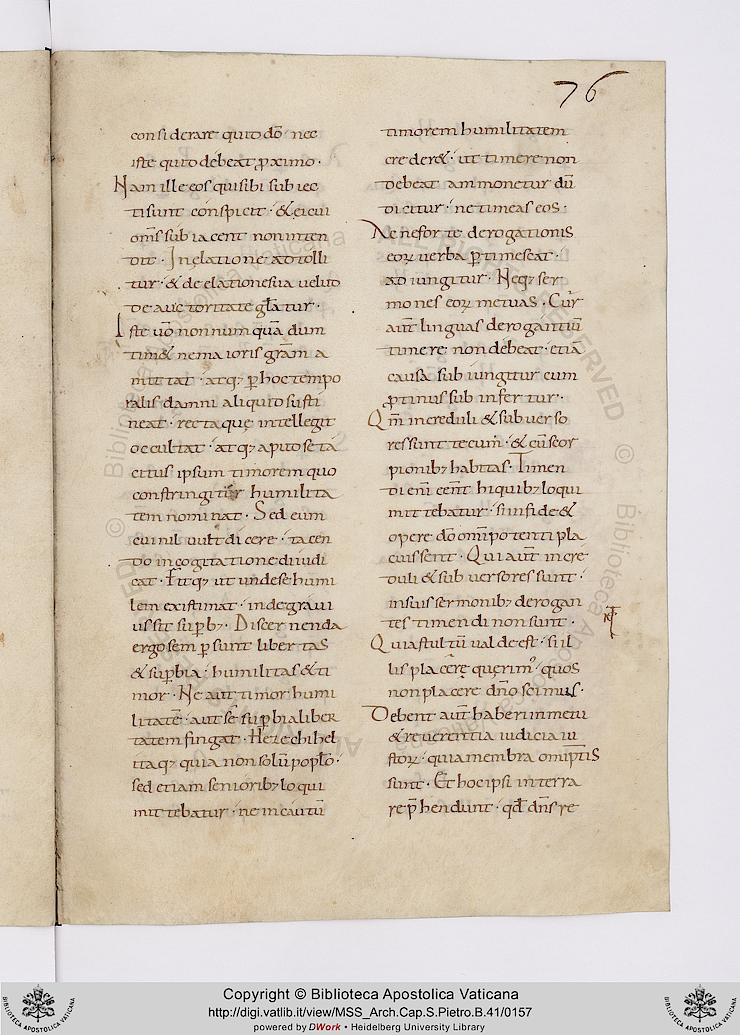 76
considerare quid dō nec
iste quid debeat ꝓximo ·
Nam ille eos qui sibi subiec
ti sunt conspicit · & ei cui
om̄s subiacent non inten
dit · In elatione adtolli
tur · & de elatione sua velud
de auctoritate gl̄atur ·
Iste uō non numquā dum
tim& ne maioris grām a
mittat · atq; ꝑ hoc tempo
ralis damni aliquid susti
neat · recta quę intellegit
occultat · atq; apud se tā
citus ipsum timorem quo
constringitur humilita
tem nominat · Sed eum
cui nil uult dicere · tacen
do in cogitatione diiudi
cat · Fitq; ut unde se humi
lem existimat · inde graui
us sit suꝑb; · Discernenda
ergo semꝑ sunt libertas
& suꝑbia · humilitas & ti
mor · Ne aut timor humi
litatē · aut sē suꝑbia liber
tatem fingat · Hezechihel
itaq; quia non solū pop̄lo ·
sed etiam seniorib; loqui
mittebatur · ne incautū
timorem humilitatem
creder& · ut timere non
debeat ammonetur dū
dicitur · ne timeas eos ·
Ac ne forte derogationis
eoꝝ verba ꝑtimescat ·
adiungitur · Neq; ser
mones eoꝝ metuas · Cur
aut̄ linguas derogantiū
timere non debeat · etiā
causa subiungitur cum
ꝓtinus subinfertur ·
Qm̄ increduli & subverso
res sunt tecum · & cū scor
pionib; habitas · Timen
di enī eēnt hi quib; loqui
mittebatur · si in fide &
opere dō om̄ipotenti pla
cuissent · Qui aut̄ incre
duli & subversores sunt ·
in suis sermonib; derogan
tes timendi non sunt ·
Quia stultū valde est · si il
lis placere querim᾽ quos
non placere dn̄o scimus ·
Debent aut̄ haberi in metu
& reverentia iudicia iu
stoꝝ · quia membra om̄iptis
sunt · Et hoc ipsi in terra
rep̄hendunt · qd̄ dn̄s re
Copyright © Biblioteca Apostolica Vaticana
http://digi.vatlib.it/view/MSS_Arch.Cap.S.Pietro.B.41/0157
powered by DWork • Heidelberg University Library